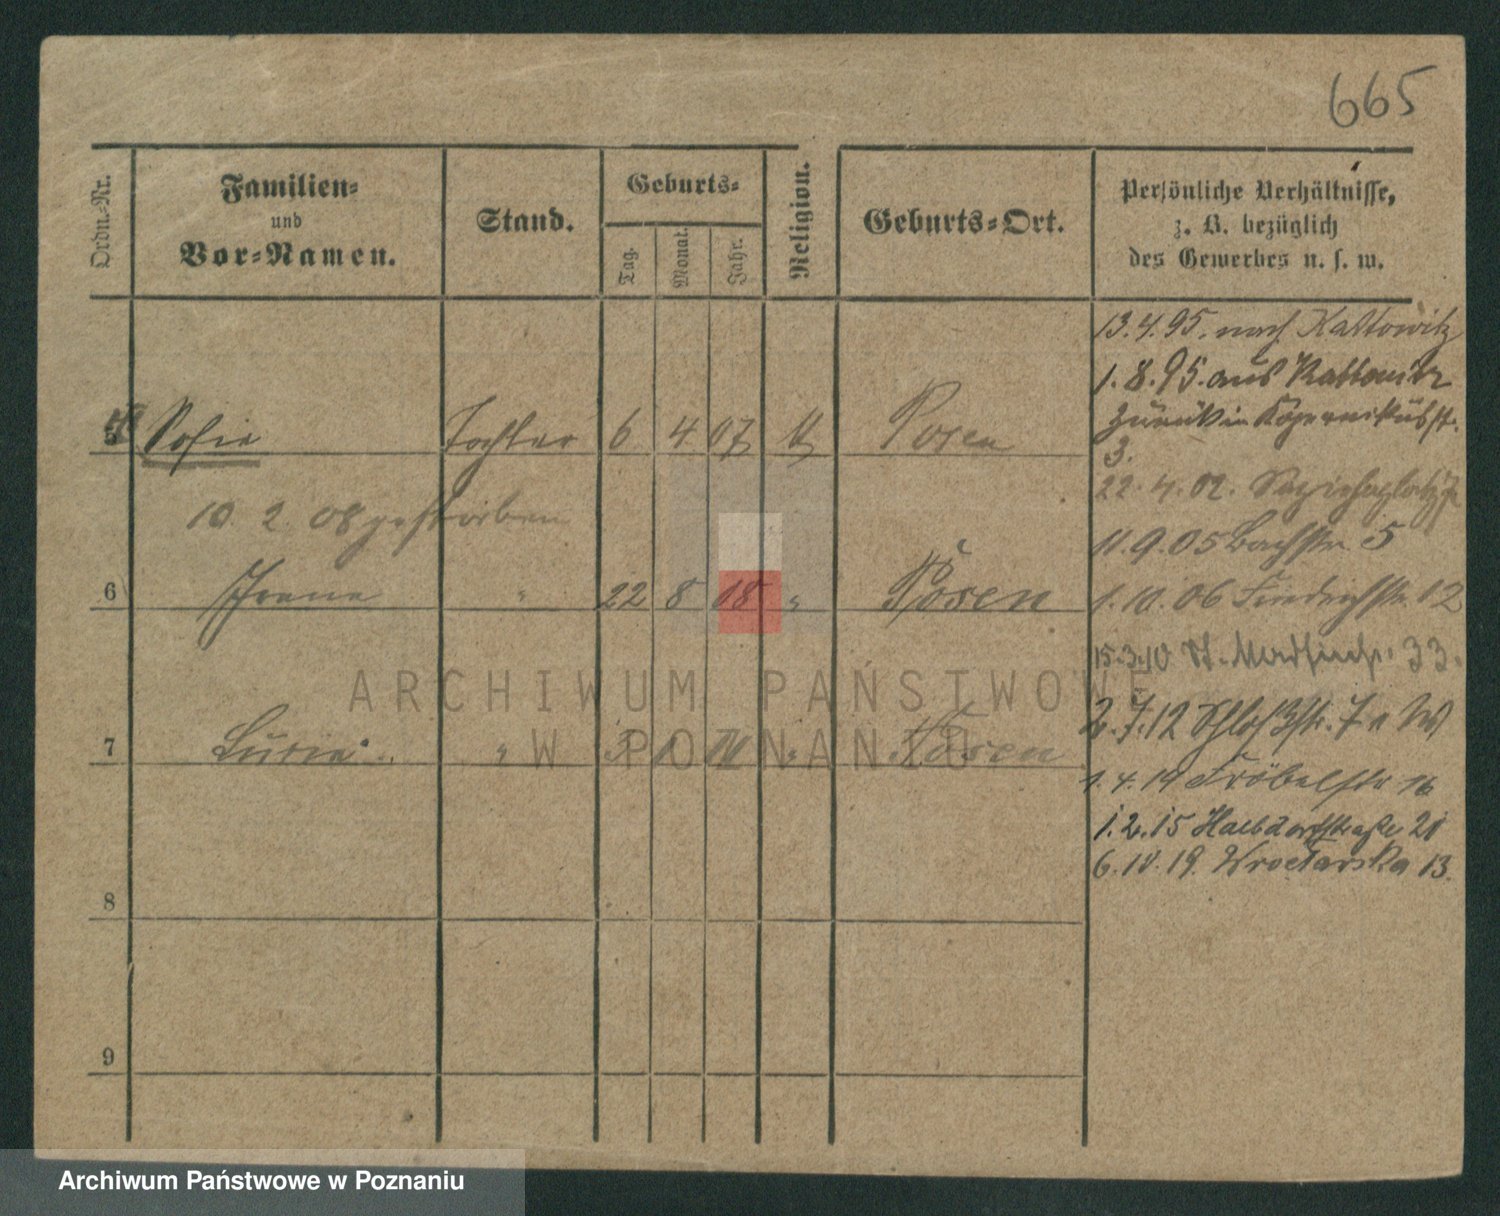 665
Ordn.-Nr.
Familien-
und
Vor-Namen.
Stand.
Geburts-
Tag.
Monat.
Jahr.
Religion.
Geburts-Ort.
Persönliche Verhältnisse,
z. B. bezüglich
des Gewerbes u. s. w.
13.4.95. nach Kattowitz
1.8.95. aus Kattowitz
zurück in Kopernikusstr.
3.
5 Sofie Tochter 6 4 07 Posen
22.4.02. Sapiehaplatz
10. 2. 08 gestorben
11.9.05 Bachstr. 5
6 Irene " 22 8 " Posen
1.10.06 Friedrichstr. 12
15.3.10 33.
2.7.12 Schloßstr. 7
7 Lucie " " Posen
1.4.14 Fröbelstr 16
1.2.15 Halbdorfstraße 21
6.10.19. Wrocławska 13.
8
9
ARCHIWUM PAŃSTWOWE
W POZNANIU
Archiwum Państwowe w Poznaniu